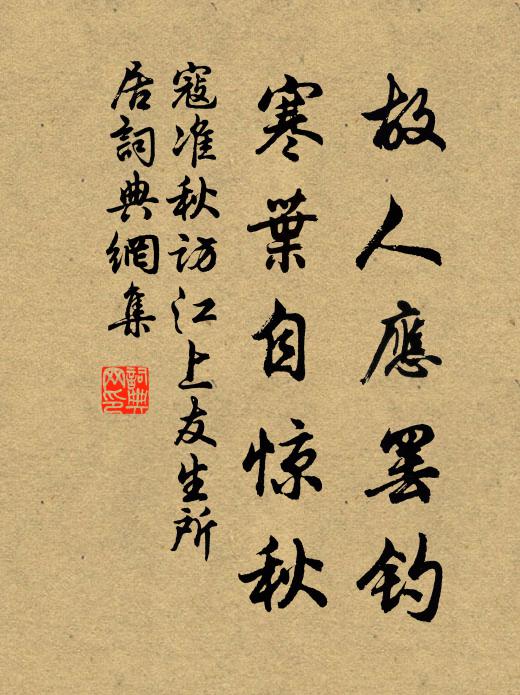 故人應罢钓
寒葉自惊秋
寇准秋访江上友生所
居詞典網集
詞典
网印